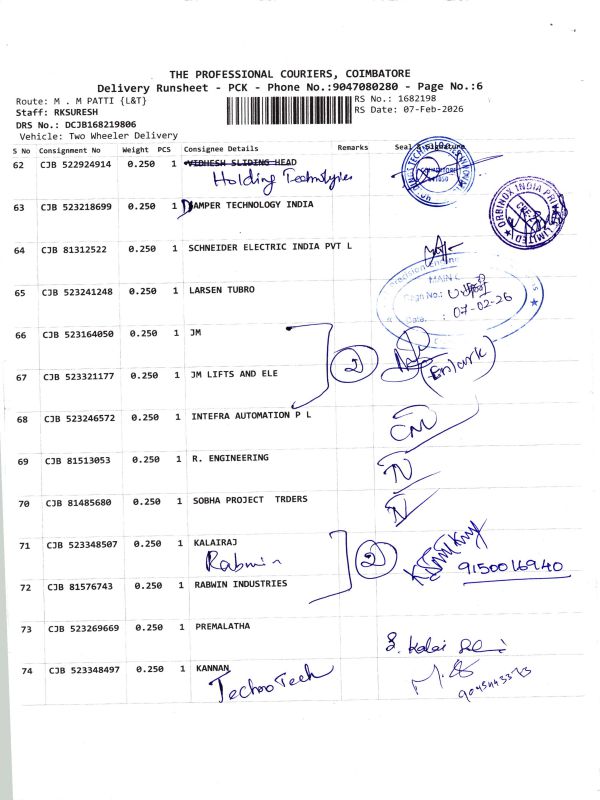 THE PROFESSIONAL COURIERS, COIMBATORE
Delivery Runsheet - PCK - Phone No.:9047080280 - Page No.:6
Route: M . M PATTI {L&T}
RS No.: 1682198
Staff: RKSURESH
RS Date: 07-Feb-2026
DRS No.: DCJB168219806
Vehicle: Two Wheeler Delivery
S No Consignment No Weight PCS Consignee Details Remarks Seal & Signature
62 CJB 522924914 0.250 1 VIDHESH SLIDING HEAD
Holding Technologies
63 CJB 523218699 0.250 1 DAMPER TECHNOLOGY INDIA
ORBINOX INDIA PRIVATE LIMITED
64 CJB 81312522 0.250 1 SCHNEIDER ELECTRIC INDIA PVT L
Precision
MAIN
65 CJB 523241248 0.250 1 LARSEN TUBRO
No.:
Date. : 07-02-26
66 CJB 523164050 0.250 1 JM
2
67 CJB 523321177 0.250 1 JM LIFTS AND ELE
68 CJB 523246572 0.250 1 INTEFRA AUTOMATION P L
69 CJB 81513053 0.250 1 R. ENGINEERING
70 CJB 81485680 0.250 1 SOBHA PROJECT TRDERS
71 CJB 523348507 0.250 1 KALAIRAJ
Rabwin
2
9150016940
72 CJB 81576743 0.250 1 RABWIN INDUSTRIES
73 CJB 523269669 0.250 1 PREMALATHA
S. Kalai Selvi
74 CJB 523348497 0.250 1 KANNAN
Techno Tech